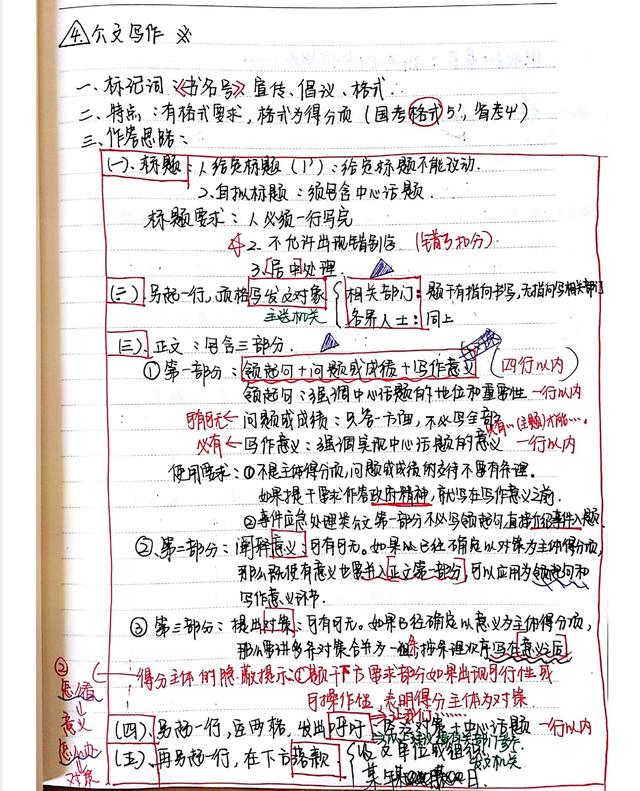 4. 公文写作 ※
一、标记词：《书名号》宣传、倡议、格式.
二、特点：有格式要求，格式为得分项（国考格式5'，省考4'）
三、作答思路：
(一)、标题：1.给定标题（1'）：给定标题不能改动.
2.自拟标题：须包含中心话题.
标题要求：1.必须一行写完
2.不允许出现错别字（错了扣分）.
3.居中处理.
(二).另起一行，顶格写发文对象 相关部门：题干有指向书写，无指向写相关部门
主送机关 各界人士：同上
(三).正文：包含三部分.
①第一部分：领起句+问题或成绩+写作意义（四行以内）
领起句：强调中心话题的地位和重要性 一行以内
可有可无← 问题或成绩：只答一方面，不必写全部
必有…(主题)才能….
必有← 写作意义：强调实现中心话题的意义 一行以内
使用要求：①不是主体得分项，问题或成绩的交待不要有条理.
如果提干要求作答政府精神，就写在写作意义之前.
②事件应急处理类公文第一部分不必写领起句，直接介绍事件入题.
②、第二部分：阐释意义：可有可无。如果已经确定以对策为主体得分项，
那么既使有意义也要并入正文第一部分，可以应用为领起句和
写作意义环节.
③第三部分：提出对策：可有可无。如果已经确定以意义为主体得分项，
那么要讲多条对策合并为一条按条理次序写在意义后
② 得分主体的隐蔽提示：①题干下方要求部分如果出现可行性或
可操作性，表明得分主体为对策.
怎么看
↓
意义
怎么办
↓
对策
(四).另起一行，空两格，发出呼吁 对策+中心话题 一行以内
让我们……
(五).再另起一行，在下方落款 发文单位或组织.
发文机关
某年某月某日.